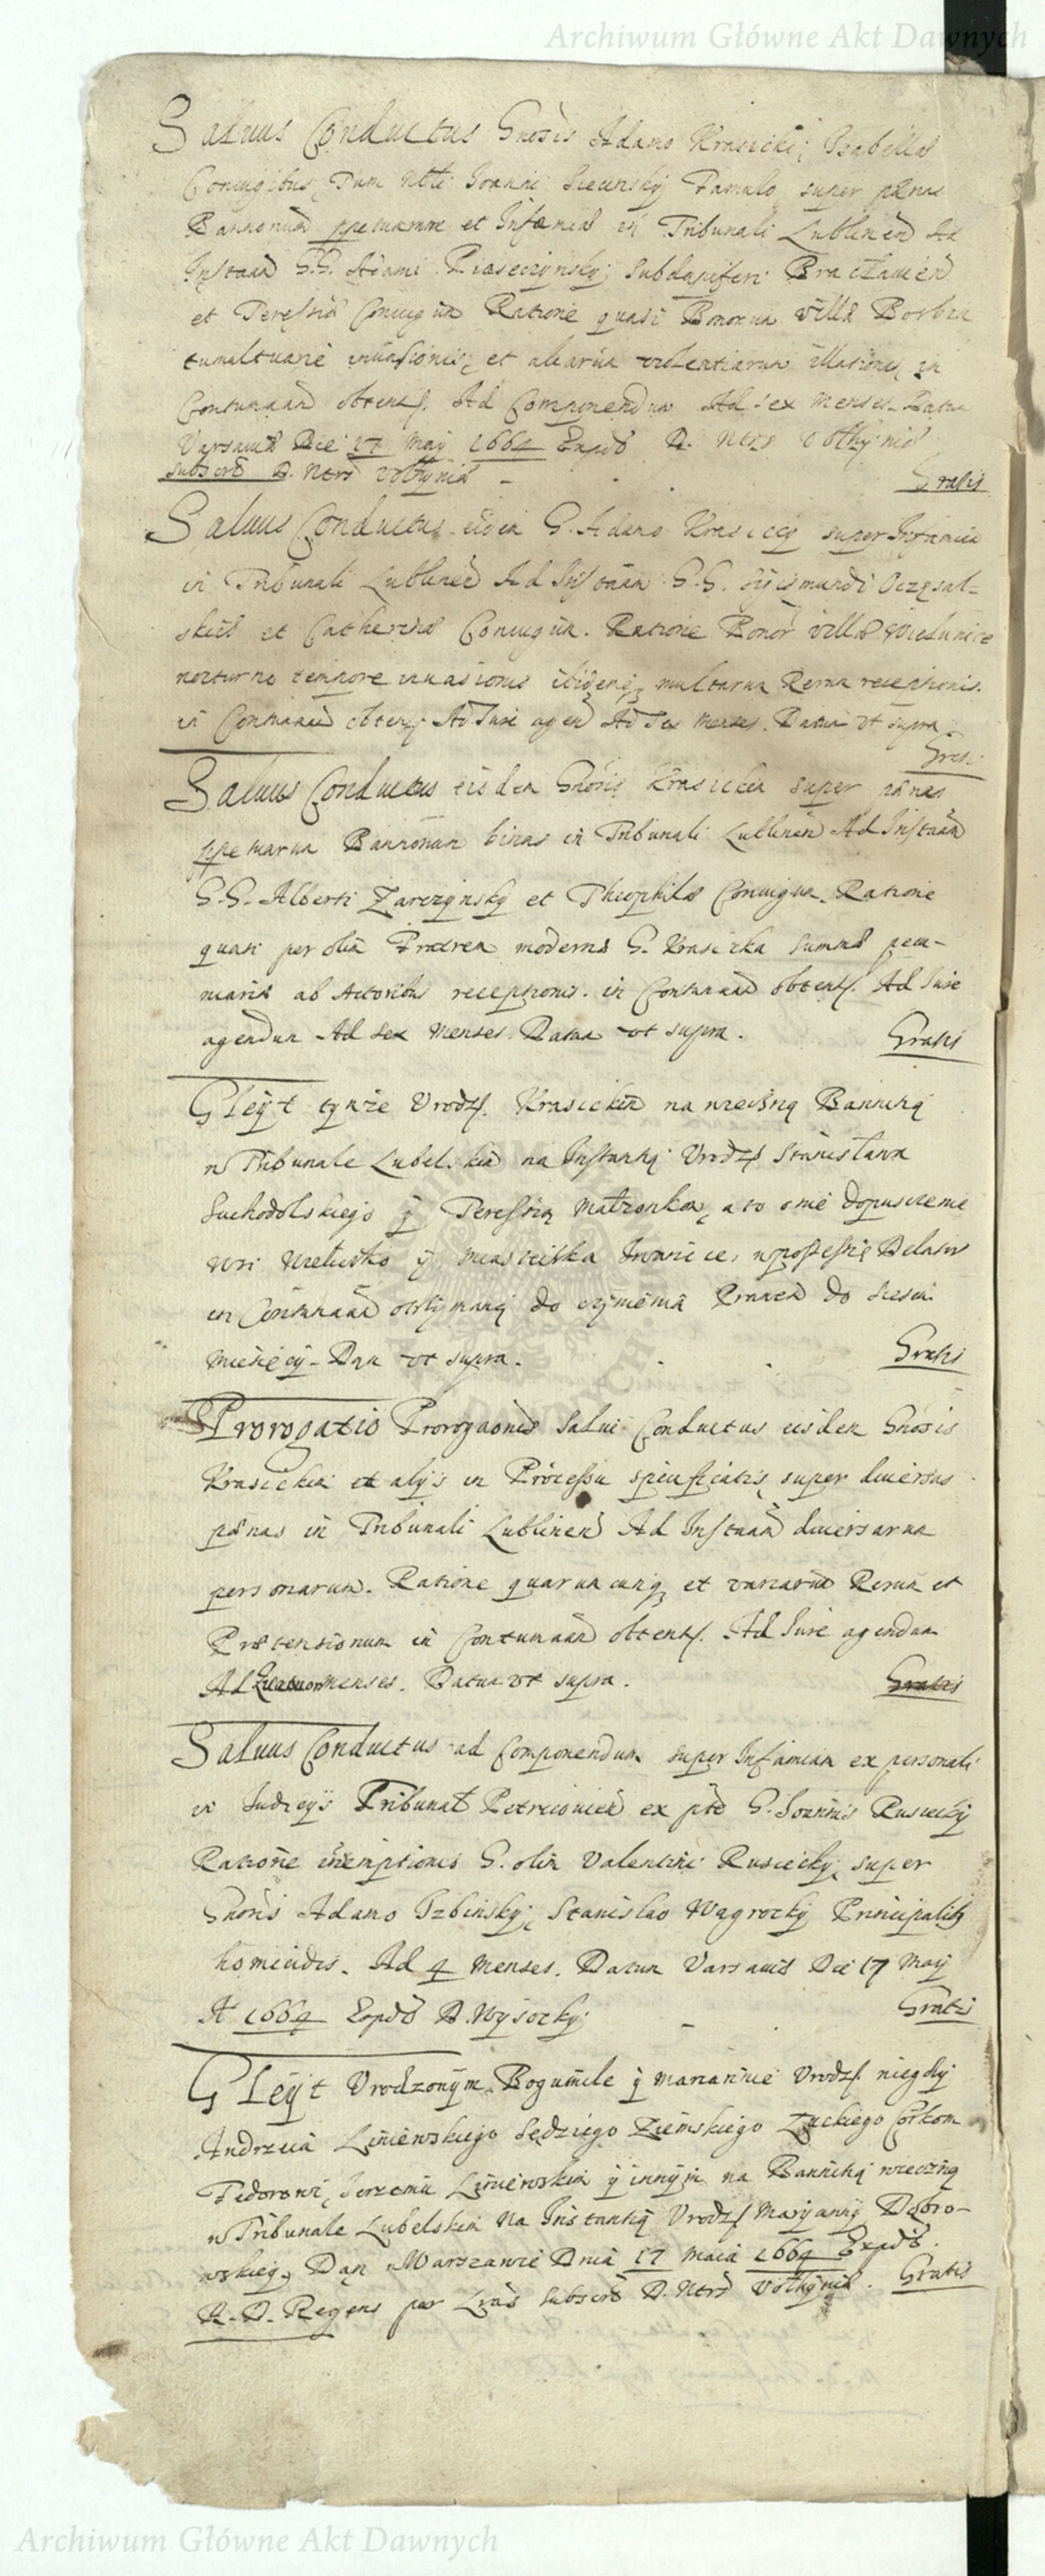 Archiwum Główne Akt Dawnych
Salvus Conductus Gnosis Adamo Krasicki, Isabellae
Coniugibus, Tum Nbli Ioanni Famulo super paenas
Bannorum ppetuarum et Infamiae in Tribunali Lublinen Ad
Instaan G.G. Adami Piaseczynsky, Subdapiferi Braclavien
et Teressiae Coniugum Ratione quasi Bonorum villae
tumultuarie invasionis, et aliarum violentiarum illationis in
Contumaan obtent. Ad Componendum Ad sex menses. Datum
Varsaviae Die 17 May 1664 Expds D. Ntrs Volhyniae
Subscrs D. Ntrs Volhyniae -
Gratis
Salvus Conductus eidem G. Adamo Krasicky super Infamia
in Tribunali Lublinen Ad Instaan G.G. Sigismundi
skich et Catherinae Coniugum. Ratione Bonor villae
nocturno tempore invasionis ibidemq multarum Rerum receptionis.
in Contumaan obtent. Ad Iure agen Ad Sex Menses. Datum vt supra
Gratis
Salvus Conductus eisdem Gnosis Krasickim super paenas
ppetuarum Bannonum binas in Tribunali Lublinen Ad Instaan
G.G. Alberti Zarczynsky et Theophilae Coniugum. Ratione
quasi per olim Fratrem modernae G. Krasicka Summae pecu-
niariae ab Actoribus receptionis. in Contumaan obtent. Ad Iure
agendum Ad sex Menses. Datum vt supra.
Gratis
Gleyt tymże Vrodz. Krasickim na wieczną Bannitią
w Tribunale Lubelskim na Instantią Vrodz Stanisława
Suchodolskiego y Teressią Małżonkow, a to o nie dopuszczenie
wsi y miasteczka w possessią Delatorow
in Contumaan otrzymaną do czynienia Prawem do sześci
Miesięcy. Dan vt supra.
Gratis
Prorogatio Prorogaonis Salvi Conductus eisdem Gnosis
Krasickim et alys in Processu specificatis, super diversas
paenas in Tribunali Lublinen Ad Instaan diversarum
personarum. Ratione quarumcunq, et variarum Rerum et
Praetensionum in Contumaan obtent. Ad Iure agendum
Ad Quatuor menses. Datum vt supra.
Gratis
Salvus Conductus ad Componendum super Infamiam ex personali
in Iudicys Tribunal Petricovien ex pte G. Ioannis Rusiecky
Ratione interemptionis G. olim Valentini Rusiecky, super
Gnosis Adamo Izbinsky, Stanislao Wagrocky Principalib
homicidis. Ad 4 Menses. Datum Varsaviae Die 17 May
A 1664 Expds D. Wysocky.
Gratis
Gleyt Vrodzonym Bogumile y Mariannie Vrodz. niegdy
Andrzeia Liniewskiego Sędziego Ziemskiego Łuckiego Corkom
Fedorowi, Ierzemu Liniewskim y innym na Bannitią wieczną
w Tribunale Lubelskim Na Instantią Vrodz Maryanny Dobro-
wskiey, Dan w Warszawie Dnia 17 Maia 1664 Expds.
R. D. Regens per Lras Subscrs D. Ntrs Volhyniae. Gratis
Archiwum Główne Akt Dawnych